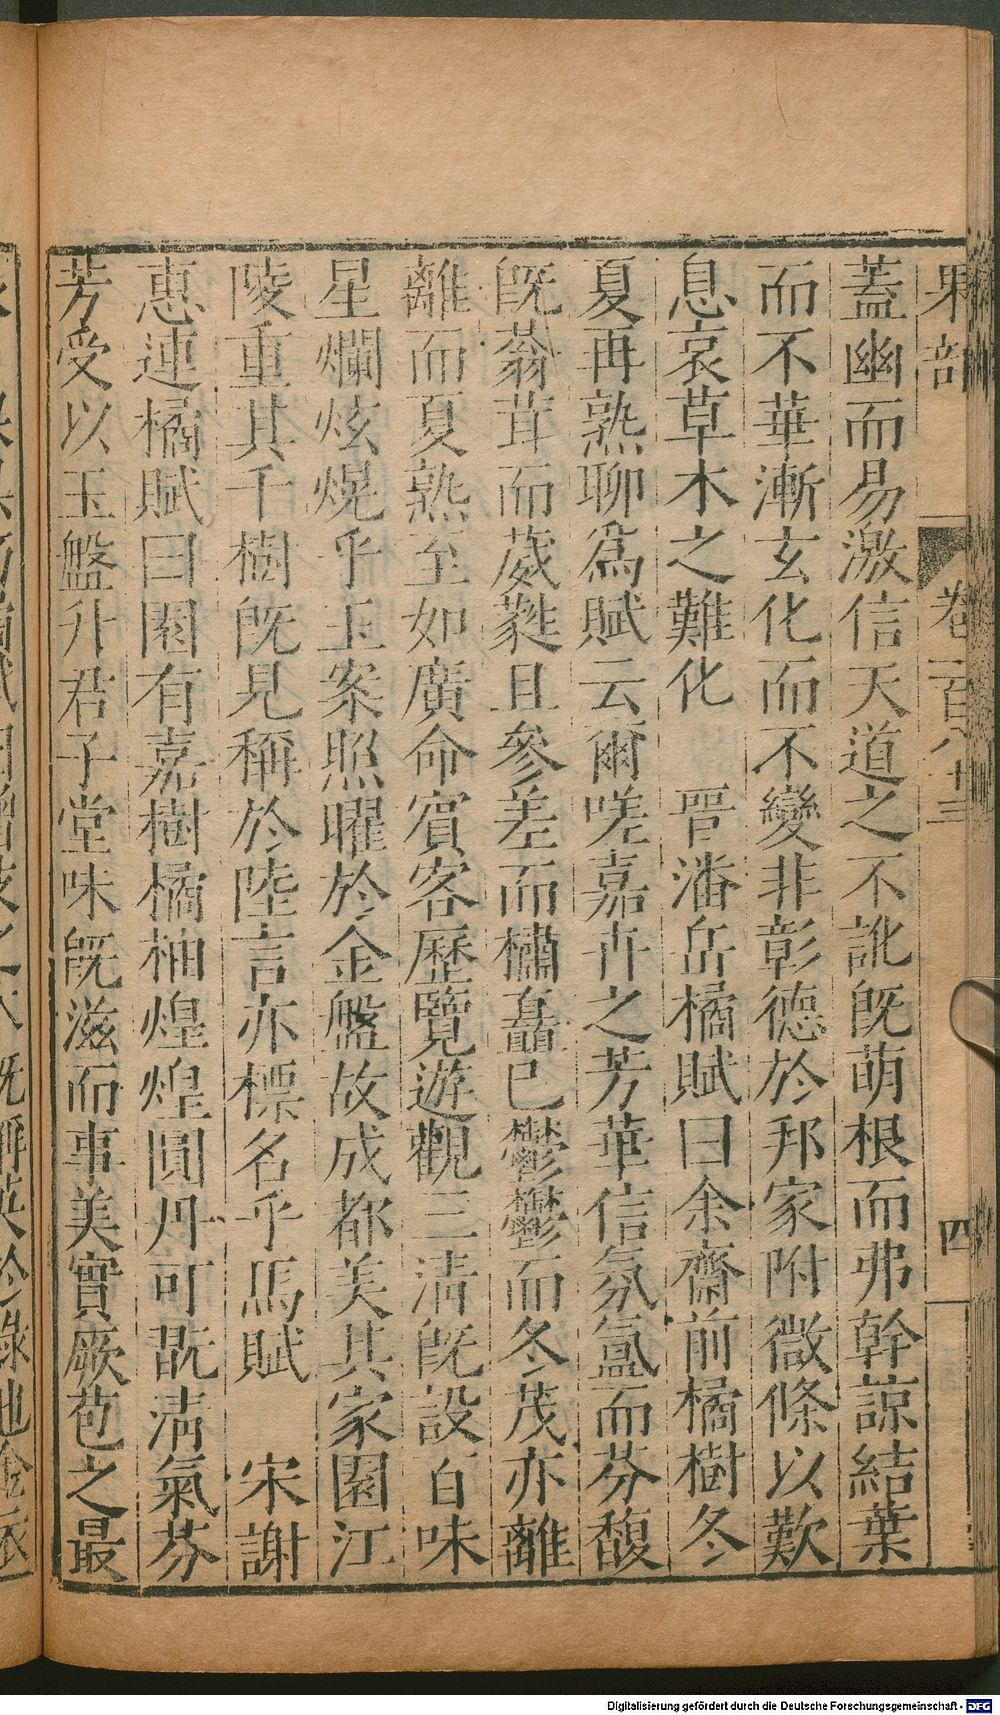 果部
卷二百八十三
四
蓋幽而易激信天道之不訛既萌根而弗幹諒結葉
而不華漸玄化而不變非彰德於邦家附微條以歎
息哀草木之難化　晉潘岳橘賦曰余齋前橘樹冬
夏再熟聊爲賦云爾嗟嘉卉之芳華信氛氳而芬馥
既蓊茸而葳蕤且參差而橚矗已鬱鬱而冬茂亦離
離而夏熟至如廣命賓客歷覽遊觀三清既設百味
星爛炫熀乎玉案照曜於金盤故成都美其家園江
陵重其千樹既見稱於陸言亦標名乎馬賦　宋謝
惠連橘賦曰園有嘉樹橘柚煌煌圓丹可翫清氣芬
芳受以玉盤升君子堂味既滋而事美實厥苞之最
Digitalisierung gefördert durch die Deutsche Forschungsgemeinschaft - DFG